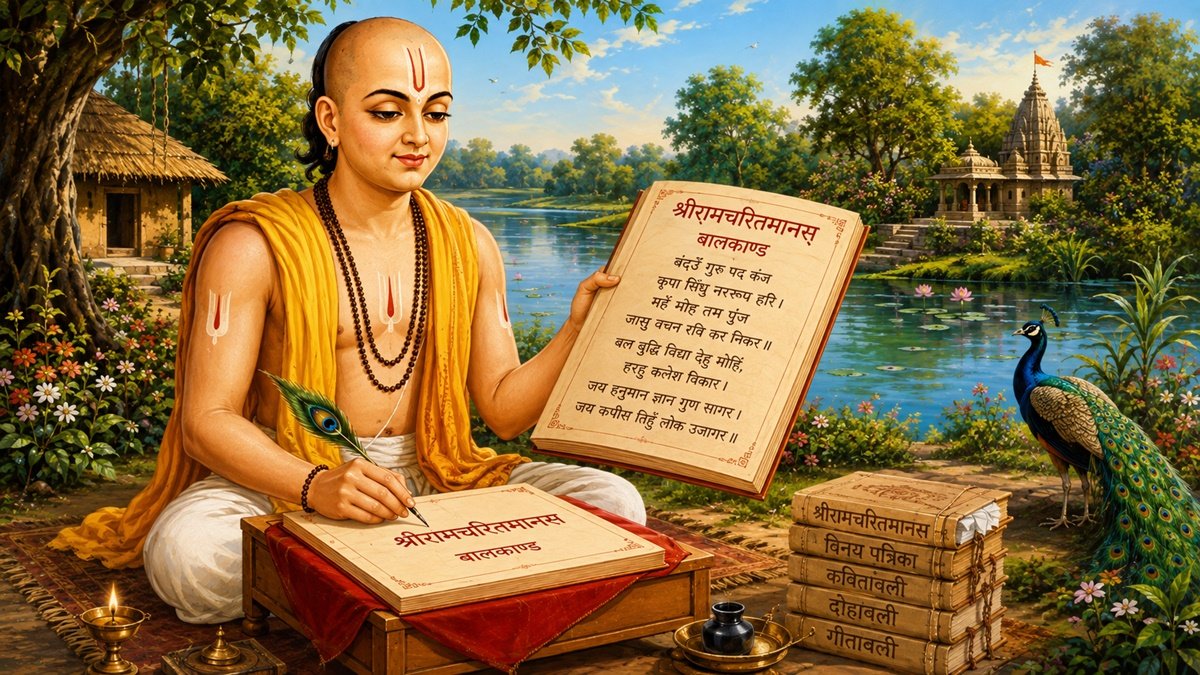 श्रीरामचरितमानस्
बालकाण्ड
बंदउँ गुरु पद कंज
कृपा सिंधु नररूप हरि ।
महँ मोह तम पुंज
जासु वचन रवि कर निकर ॥
बल बुद्धि विद्या देहु मोहिं,
हरहु कलेश विकार ।
जय हनुमान ज्ञान गुण सागर ।
जय कपीस तिहुँ लोक उजागर ॥
श्रीरामचरितमानस
बालकाण्ड
श्रीरामचरितमानस
विनय पत्रिका
कवितावली
दोहावली
गीतावली